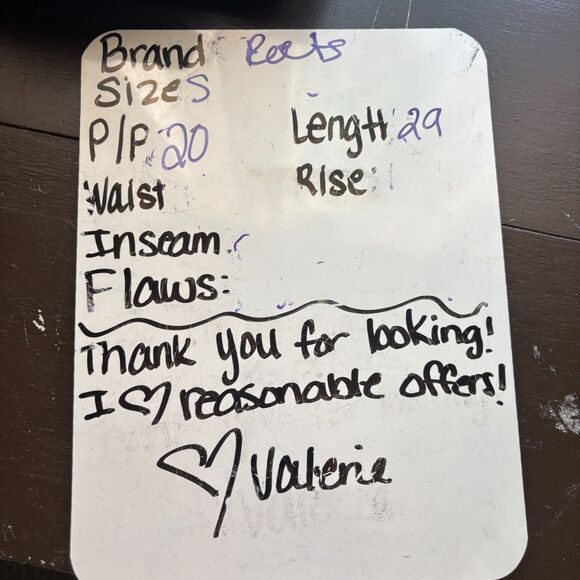 Brand Roots
Size S
P/P 20 Length 29
Waist Rise:
Inseam
Flaws:
Thank you for looking!
I ♡ reasonable offers!
♡ Valerie